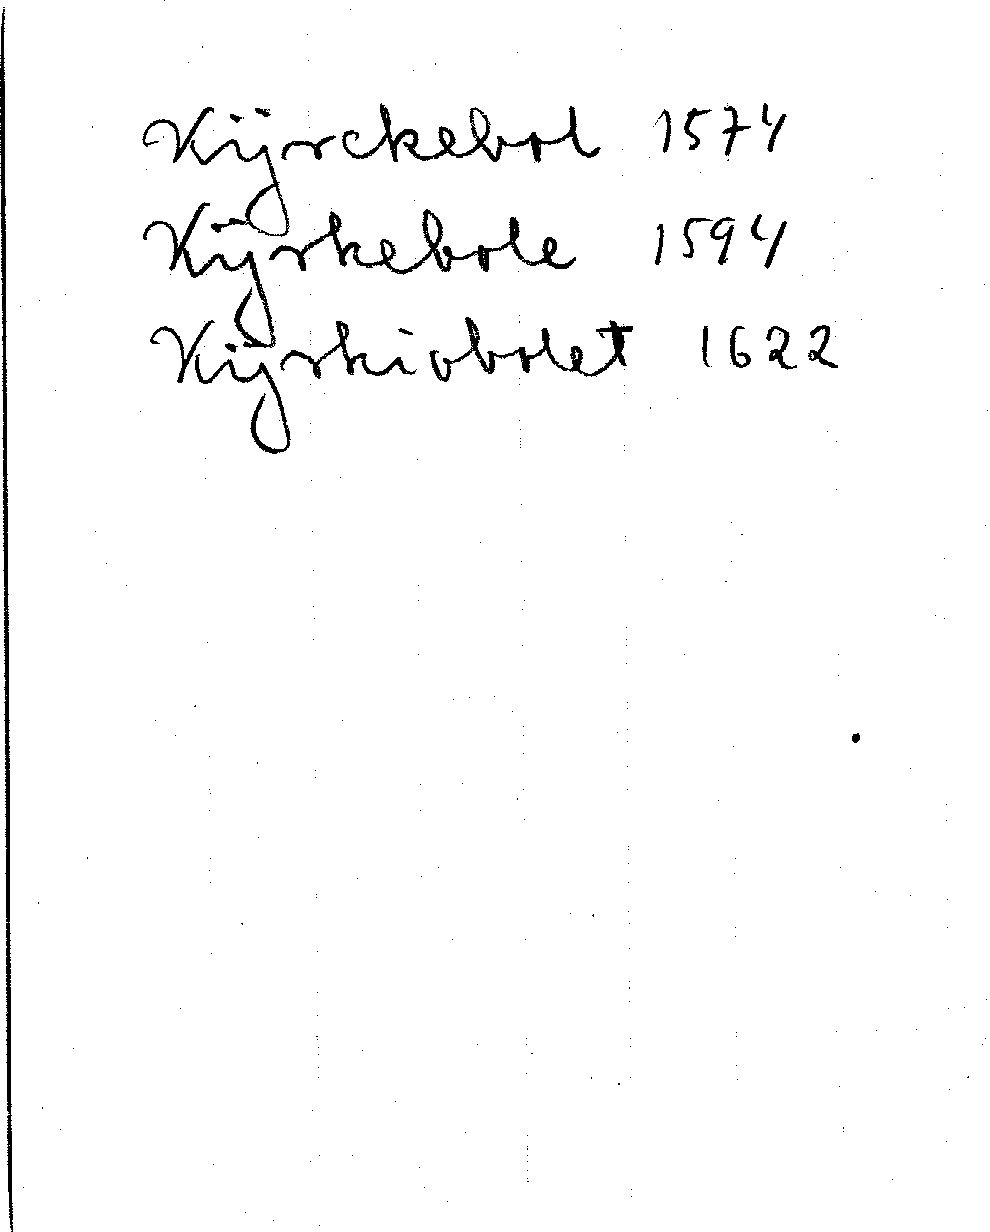 Kijrckebol 1574
Kijrkebole 1594
Kijrkiobolet 1622